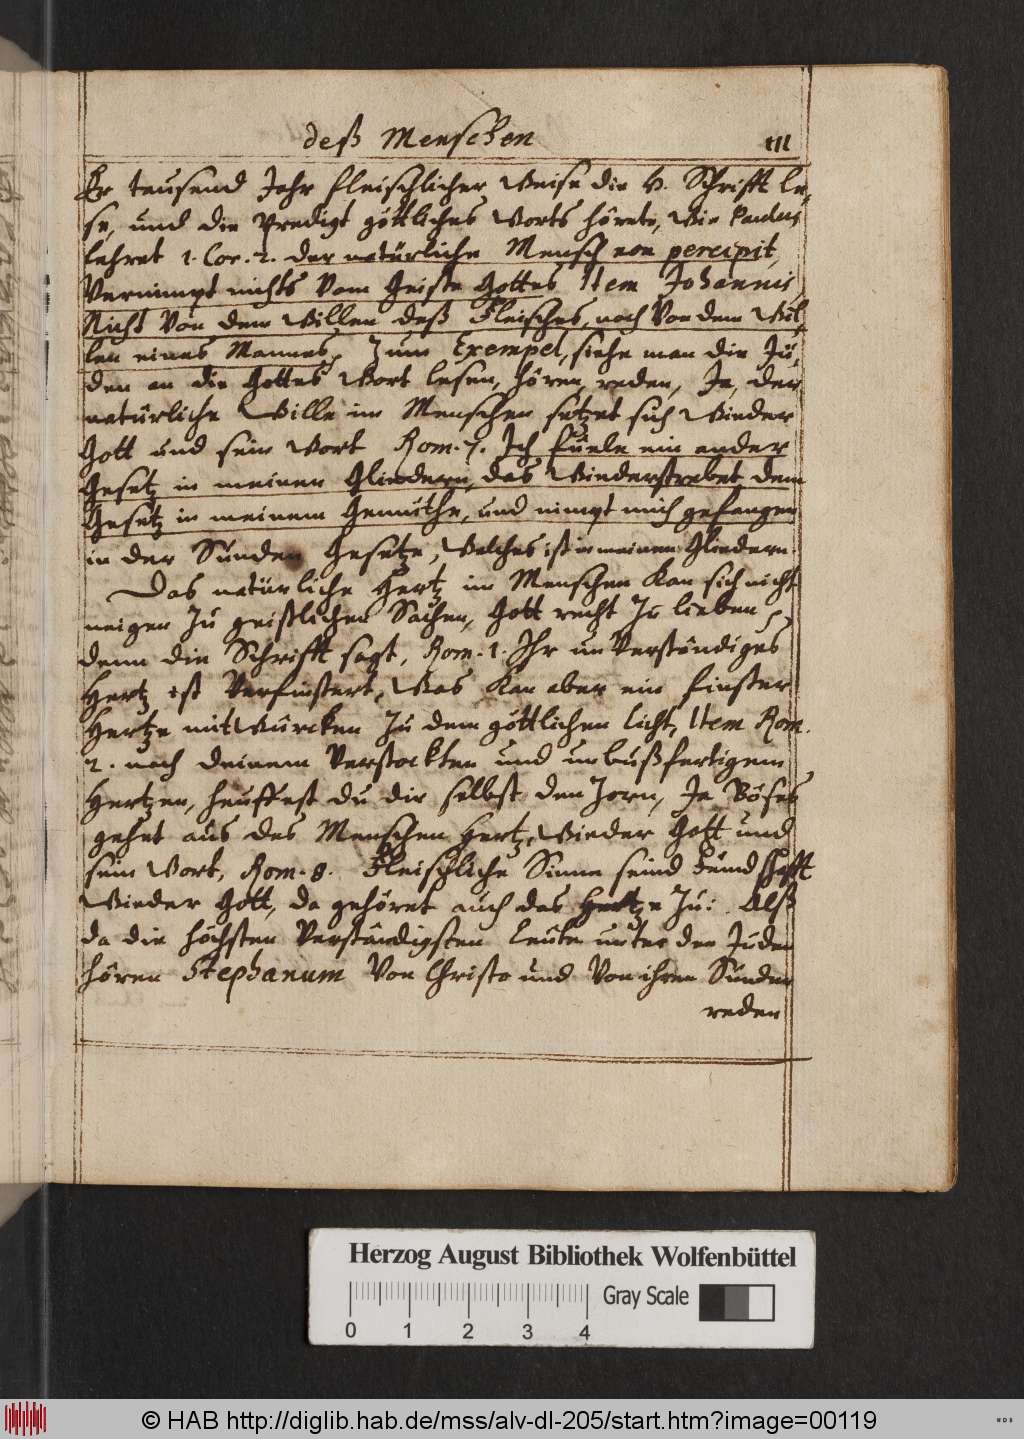 deß Menschen 111
Er tausend Jahr fleischlicher Weise die H. Schrifft le,
se, und die Predigt göttliches Worts hörete, Wie Paulus
lehret 1. Cor. 2. der natürliche Mensch non percipit,
Vernimpt nichts Vom Geiste Gottes Item Johannis
Nicht Von dem Willen deß Fleisches, noch Von dem Wil,
len eines Mannes, Zum Exempel, siehe man die Jü,
den an die Gottes Wort lesen, hören, reden, Ja, der
natürliche Wille im Menschen setzet sich Wieder
Gott und sein Wort Rom. 7. Ich füele ein ander
Gesetz in meinen Gliedern, das Wiederstrebet dem
Gesetz in meinem Gemüthe, und nimpt mich gefangen
in der Sünden Gesetze, Welches ist in meinen Gliedern.
Das natürliche Hertz im Menschen Kan sich nicht
neigen Zu geistlichen Sachen, Gott recht Zu lieben,
denn die Schrifft sagt, Rom. 1. Ihr unVerständiges
Hertz ist Verfinstert, Was Kan aber ein finster
Hertze mitWürcken Zu dem göttlichen licht, Item Rom.
2. nach deinem Verstockten und unbußfertigem
Hertzen, heuffest du dir selbst den Zorn, Ja Böses
gehet aus des Menschen Hertz, Wieder Gott und
sein Wort, Rom. 8. Fleischliche Sinne seind Feindschafft
Wieder Gott, da gehöret auch das Hertze Zu: Alß
da die höchsten Verständigsten leute unter den Juden
hören Stephanum Von Christo und Von ihren Sünden
reden
Herzog August Bibliothek Wolfenbüttel
Gray Scale
0 1 2 3 4
© HAB http://diglib.hab.de/mss/alv-dl-205/start.htm?image=00119